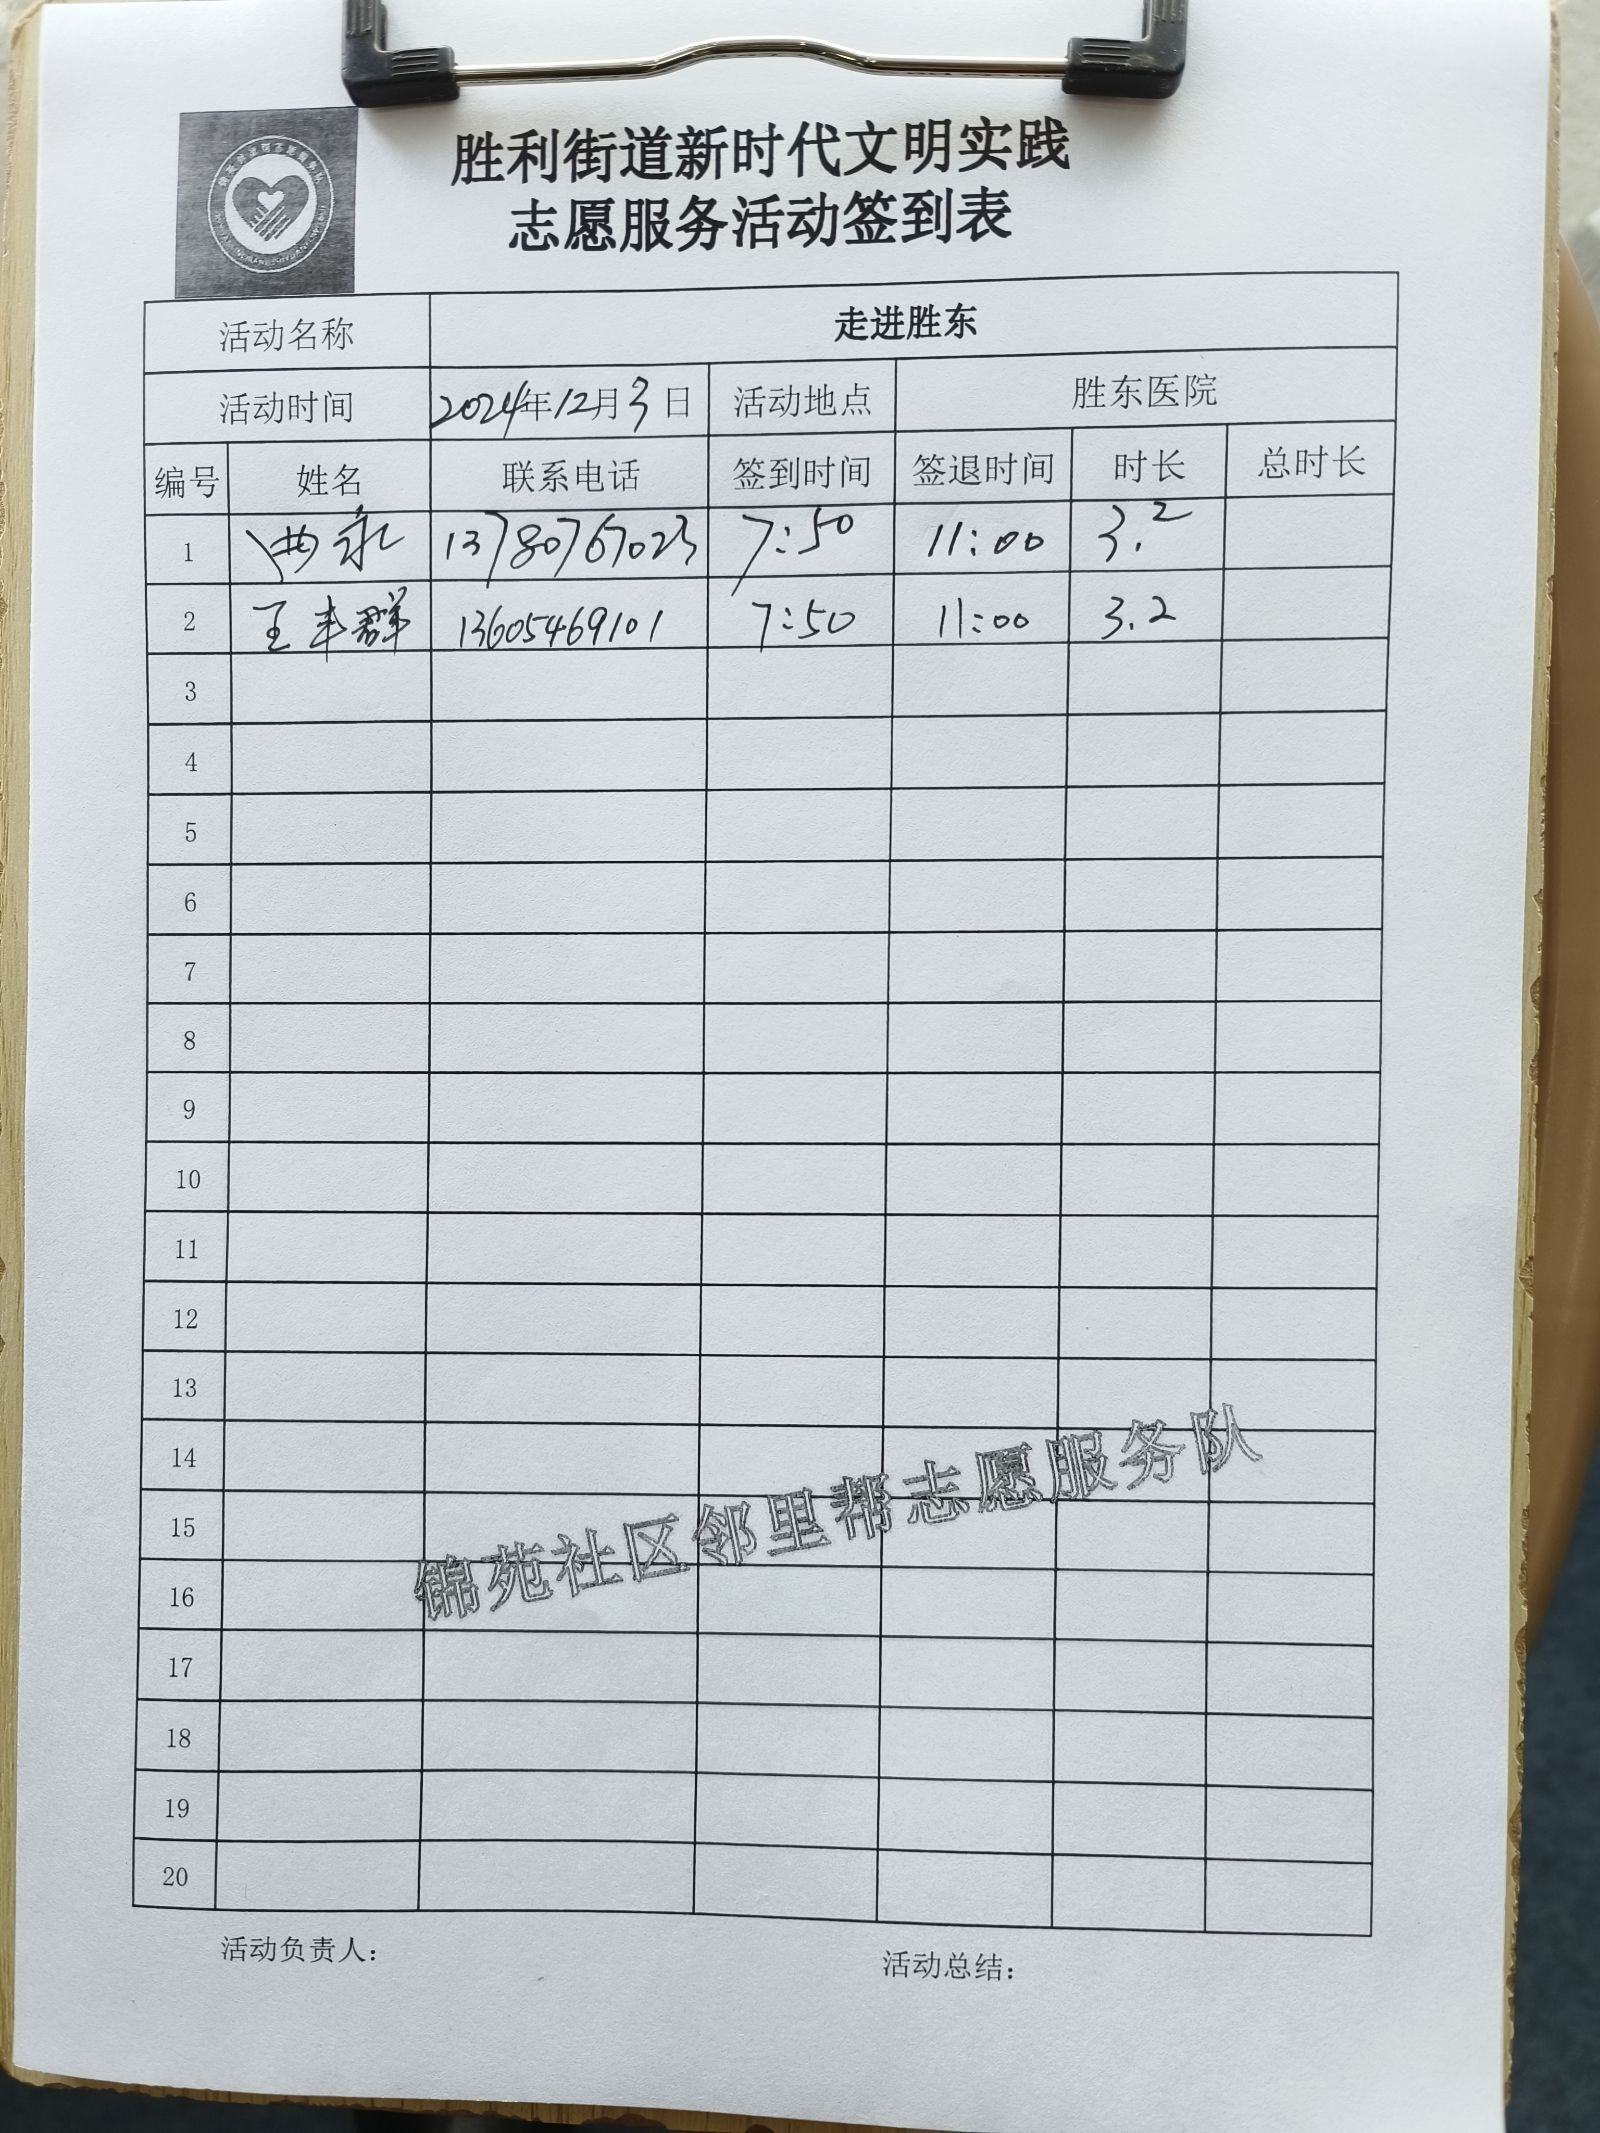 胜利街道新时代文明实践
志愿服务活动签到表
活动名称 走进胜东
活动时间 2024年12月3日 活动地点 胜东医院
编号 姓名 联系电话 签到时间 签退时间 时长 总时长
1 永 13780767023 7:50 11:00 3.2
2 王丰群 13605469101 7:50 11:00 3.2
3
4
5
6
7
8
9
10
11
12
13
14
15
16
17
18
19
20
锦苑社区邻里帮志愿服务队
活动负责人： 活动总结：